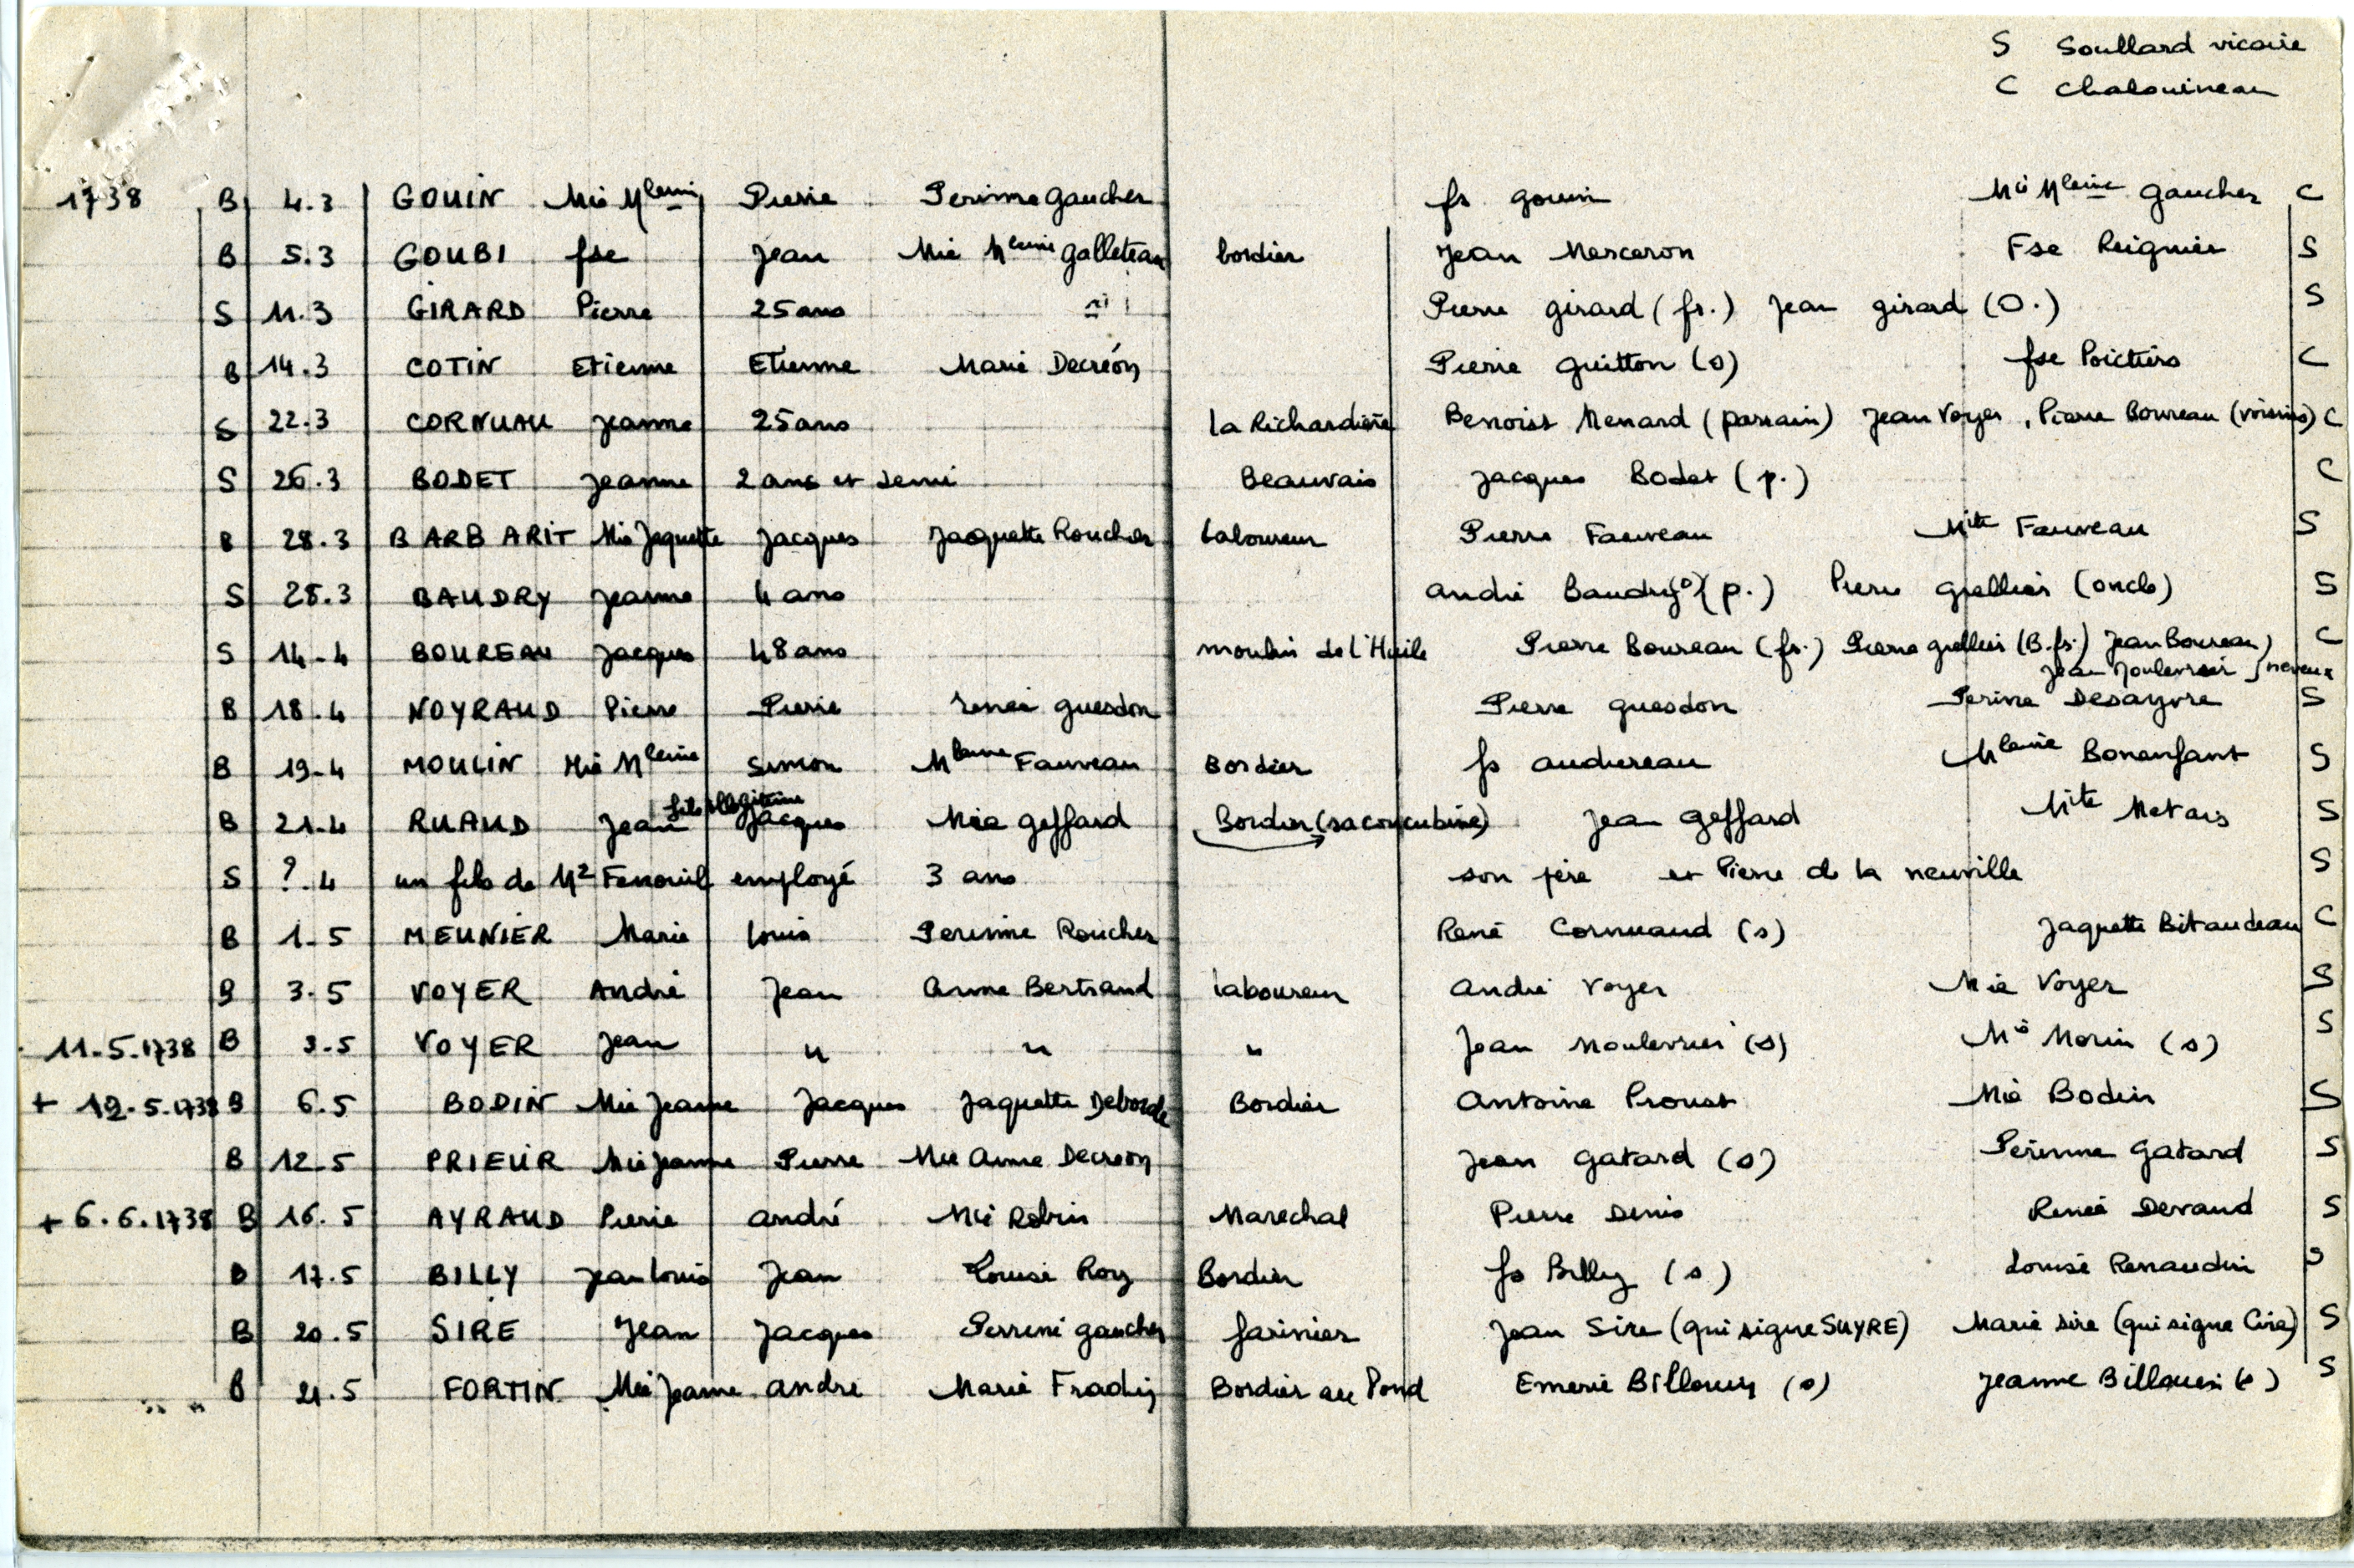 S Soullard vicaire
C Chalouineau
1738 B 4.3 GOUIN Mie Mleine Pierre Perinne Gaucher fs gouin Mie Mleine Gaucher C
B 5.3 GOUBI fse Jean Mie Mleine Galleteau bordier Jean Merceron Fse Reignier S
S 11.3 GIRARD Pierre 25 ans Pierre girard (fr.) Jean girard (O.) S
B 14.3 COTIN Etienne Etienne Marie Decréon Pierre Guitton (s) fse Poictiers C
S 22.3 CORNUAU Jeanne 25 ans la Richardière Benoist Menard (parrain) Jean Voyer, Pierre Boureau (voisins) C
S 26.3 BODET Jeanne 2 ans et demi Beauvais Jacques Bodet (p.) C
B 28.3 BARBARIT Mie Jaquette Jacques Jaquette Roucher Laboureur Pierre Fauveau Mite Fauveau S
S 28.3 BAUDRY Jeanne 4 ans André Baudry (s) (p.) Pierre Grellier (oncle) S
S 14.4 BOUREAU Jacques 48 ans moulin de l'Huile Pierre Boureau (fr.) Pierre Grellier (B.fr.) Jean Boureau C
Jean Moulevrier } neveux
B 18.4 NOYRAUD Pierre Pierre renée Guesdon Pierre Guesdon Perine Desayvre S
B 19.4 MOULIN Mie Mleine Simon Mleine Fauveau Bordier fs audureau Mleine Bonenfant S
fils illegitime
B 21.4 RUAUD Jean Jacques Mie Geffard Bordier (sa concubine) Jean Geffard Mite Metais S
S ?.4 un fils de Mr Fenouil employé 3 ans son père et Pierre de la neuville S
B 1.5 MEUNIER Marie Louis Perinne Roucher René Cornuaud (s) Jaquette Bitaudeau C
B 3.5 VOYER André Jean Anne Bertrand laboureur André Voyer Mie Voyer S
11.5.1738 B 3.5 VOYER Jean " " " Jean Moulevrier (s) Mie Morin (s) S
+ 12.5.1738 B 6.5 BODIN Mie Jeanne Jacques Jaquette Deborde Bordier Antoine Proust Mie Bodin S
B 12.5 PRIEUR Mie Jeanne Pierre Mie Anne Decreon Jean Gatard (s) Perinne Gatard S
+ 6.6.1738 B 16.5 AYRAUD Pierre André Mie Robin Marechal Pierre Denis Renée Devaud S
B 17.5 BILLY Jean Louis Jean Louise Roy Bordier fs Billy (s) Louise Renaudin S
B 20.5 SIRE Jean Jacques Perrine Gaucher farinier Jean Sire (qui signe SUYRE) Marie Sire (qui signe Cire) S
B 21.5 FORTIN Mie Jeanne André Marie Fradin Bordier au Pond Emerie Billouin (s) Jeanne Billouin (s) S